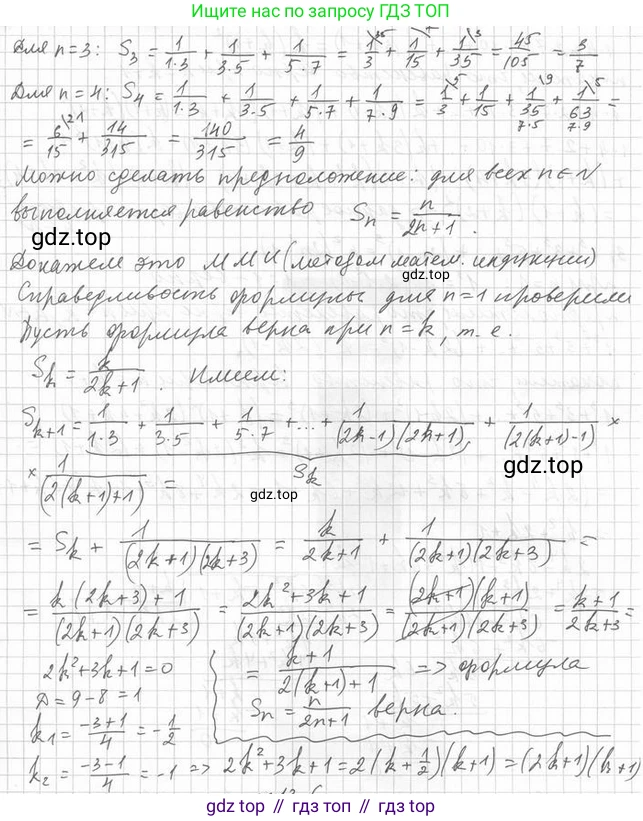 Ищите нас по запросу ГДЗ ТОП
Для n=3: S₃ = 1/(1·3) + 1/(3·5) + 1/(5·7) = 1\35/3 + 1\7/15 + 1\3/35 = 45/105 = 3/7
Для n=4: S₄ = 1/(1·3) + 1/(3·5) + 1/(5·7) + 1/(7·9) = 1\5/3 + 1/15 + 1\9/35 + 1\5/63 =
7·5 7·9
= 6\21/15 + 14/315 = 140/315 = 4/9
Можно сделать предположение: для всех n∈N
выполняется равенство Sₙ = n/(2n+1).
gdz.top
Докажем это ММИ (методом матем. индукции)
gdz.top
Справедливость формулы для n=1 проверили
Пусть формула верна при n=k, т.е.
Sₖ = k/(2k+1). Имеем:
Sₖ₊₁ = 1/(1·3) + 1/(3·5) + 1/(5·7) + ... + 1/((2k-1)(2k+1)) + 1/(2(k+1)-1) ×
Sₖ
gdz.top
× 1/(2(k+1)+1) =
gdz.top
= Sₖ + 1/((2k+1)(2k+3)) = k/(2k+1) + 1/((2k+1)(2k+3)) =
= (k(2k+3)+1)/((2k+1)(2k+3)) = (2k²+3k+1)/((2k+1)(2k+3)) = ((2k+1)(k+1))/((2k+1)(2k+3)) = (k+1)/(2k+3) =
2k²+3k+1=0
= (k+1)/(2(k+1)+1) => формула
D=9-8=1
Sₙ = n/(2n+1) верна.
k₁ = (-3+1)/4 = -1/2
k₂ = (-3-1)/4 = -1 => 2k²+3k+1=2(k+1/2)(k+1)=(2k+1)(k+1)
gdz top // гдз топ // gdz.top // гдз.топ